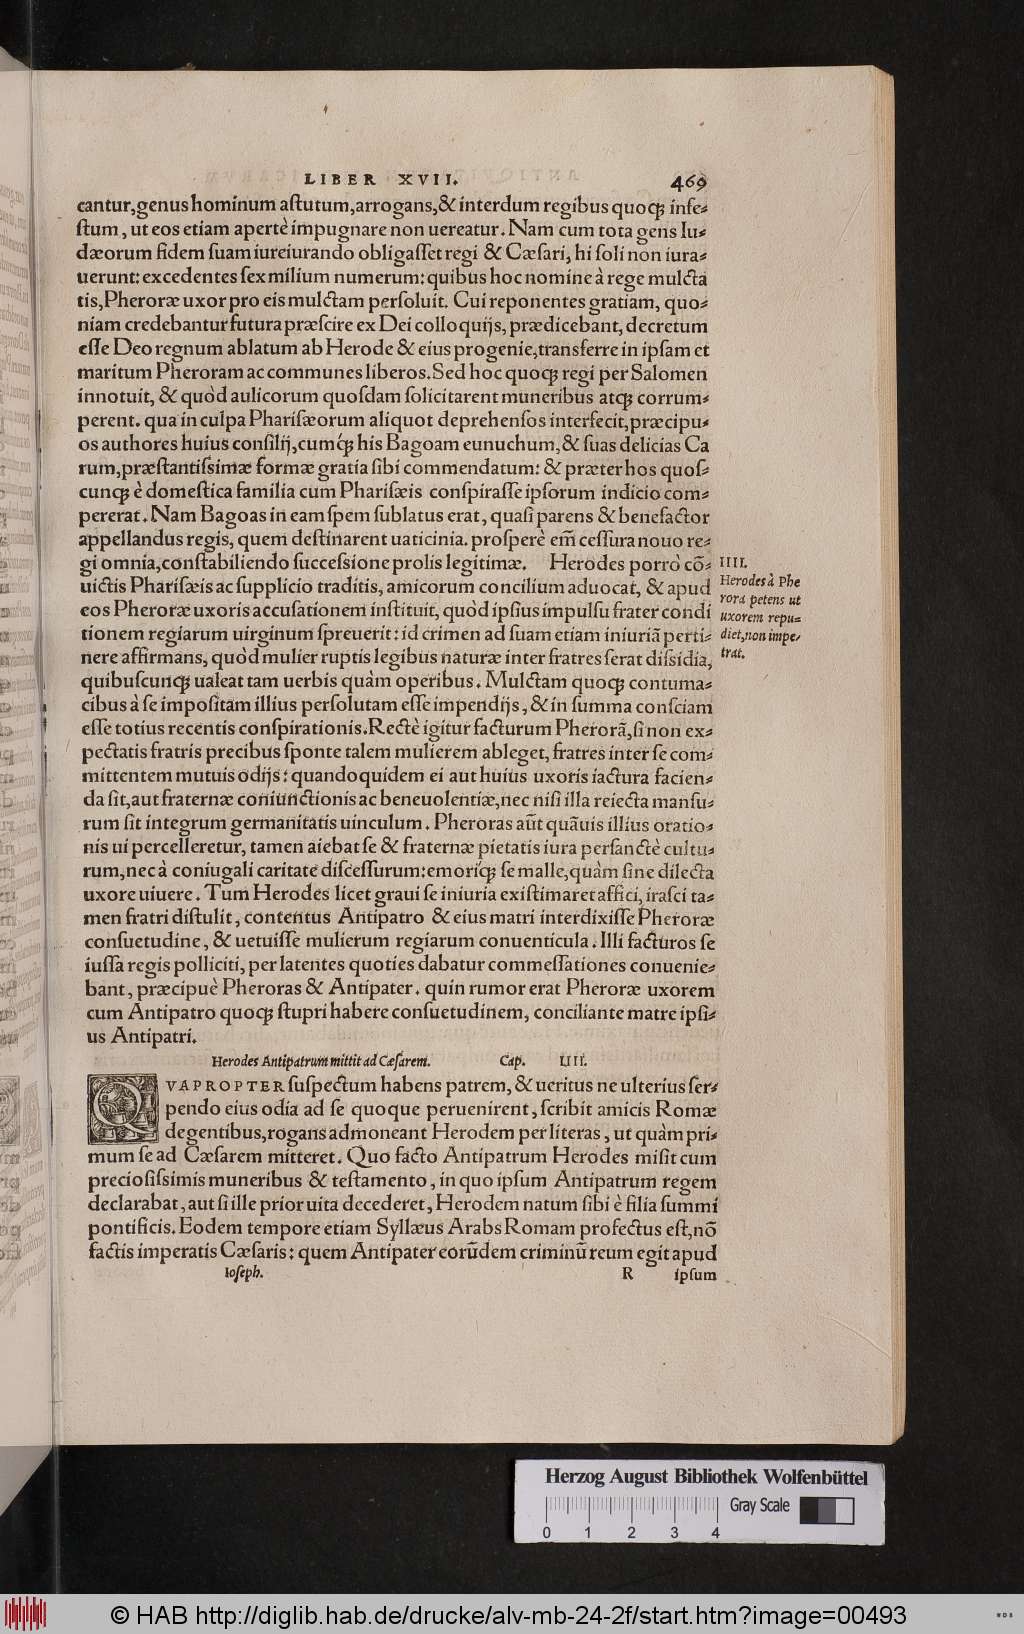 LIBER XVII. 469
cantur,genus hominum aſtutum,arrogans,& interdum regibus quoq; infe⸗
ſtum, ut eos etiam apertè impugnare non uereatur. Nam cum tota gens Iu⸗
dæorum fidem ſuam iureiurando obligaſſet regi & Cæſari, hi ſoli non iura⸗
uerunt: excedentes ſex milium numerum: quibus hoc nomine à rege mulcta
tis,Pheroræ uxor pro eis mulctam perſoluit. Cui reponentes gratiam, quo⸗
niam credebantur futura præſcire ex Dei colloquijs, prædicebant, decretum
eſſe Deo regnum ablatum ab Herode & eius progenie,transferre in ipſam et
maritum Pheroram ac communes liberos. Sed hoc quoq; regi per Salomen
innotuit, & quòd aulicorum quoſdam ſolicitarent muneribus atq; corrum⸗
perent. qua in culpa Phariſæorum aliquot deprehenſos interfecit,præcipu⸗
os authores huius conſilij,cumq́; his Bagoam eunuchum,& ſuas delicias Ca
rum,præſtantiſsimæ formæ gratia ſibi commendatum: & præter hos quoſ⸗
cunq; è domeſtica familia cum Phariſæis conſpiraſſe ipſorum indicio com⸗
pererat. Nam Bagoas in eam ſpem ſublatus erat, quaſi parens & benefactor
appellandus regis, quem deſtinarent uaticinia. proſperè em̃ ceſſura nouo re⸗
gi omnia,conſtabiliendo ſucceſsione prolis legitimæ. Herodes porrò cõ⸗
uictis Phariſæis ac ſupplicio traditis, amicorum concilium aduocat, & apud
eos Pheroræ uxoris accuſationem inſtituit, quòd ipſius impulſu frater condi
tionem regiarum uirginum ſpreuerit: id crimen ad ſuam etiam iniuriã perti⸗
nere affirmans, quòd mulier ruptis legibus naturæ inter fratres ſerat diſsidia,
quibuſcunq; ualeat tam uerbis quàm operibus. Mulctam quoq; contuma⸗
cibus à ſe impoſitam illius perſolutam eſſe impendijs, & in ſumma conſciam
eſſe totius recentis conſpirationis. Rectè igitur facturum Pherorã, ſi non ex⸗
pectatis fratris precibus ſponte talem mulierem ableget, fratres inter ſe com⸗
mittentem mutuis odijs: quandoquidem ei aut huius uxoris iactura facien⸗
da ſit,aut fraternæ coniunctionis ac beneuolentiæ,nec niſi illa reiecta manſu⸗
rum ſit integrum germanitatis uinculum. Pheroras aũt quãuis illius oratio⸗
nis ui percelleretur, tamen aiebat ſe & fraternæ pietatis iura perſanctè cultu⸗
rum,nec à coniugali caritate diſceſſurum:emoriq́; ſe malle,quàm ſine dilecta
uxore uiuere. Tum Herodes licet graui ſe iniuria exiſtimaret affici, iraſci ta⸗
men fratri diſtulit, contentus Antipatro & eius matri interdixiſſe Pheroræ
conſuetudine, & uetuiſſe mulierum regiarum conuenticula. Illi facturos ſe
iuſſa regis polliciti, per latentes quoties dabatur commeſſationes conuenie⸗
bant, præcipuè Pheroras & Antipater. quin rumor erat Pheroræ uxorem
cum Antipatro quoq; ſtupri habere conſuetudinem, conciliante matre ipſi⸗
us Antipatri.
IIII.
Herodes à Phe
rora petens ut
uxorem repu⸗
diet,non impe⸗
trat.
Herodes Antipatrum mittit ad Cæſarem. Cap. IIII.
QVAPROPTER ſuſpectum habens patrem, & ueritus ne ulterius ſer⸗
pendo eius odia ad ſe quoque peruenirent, ſcribit amicis Romæ
degentibus,rogans admoneant Herodem per literas, ut quàm pri⸗
mum ſe ad Cæſarem mitteret. Quo facto Antipatrum Herodes miſit cum
precioſiſsimis muneribus & teſtamento, in quo ipſum Antipatrum regem
declarabat, aut ſi ille prior uita decederet, Herodem natum ſibi è filia ſummi
pontificis. Eodem tempore etiam Syllæus Arabs Romam profectus eſt,nõ
factis imperatis Cæſaris: quem Antipater eorũdem criminũ reum egit apud
Ioſeph. R ipſum
Herzog August Bibliothek Wolfenbüttel
Gray Scale
0 1 2 3 4
© HAB http://diglib.hab.de/drucke/alv-mb-24-2f/start.htm?image=00493